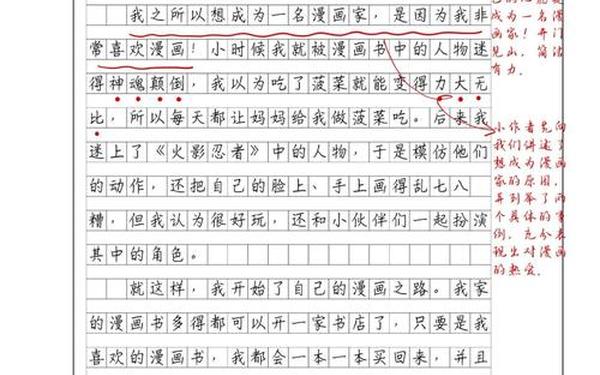 我之所以想成为一名漫画家，是因为我非
常喜欢漫画！小时候我就被漫画书中的人物迷
得神魂颠倒，我以为吃了菠菜就能变得力大无
比，所以每天都让妈妈给我做菠菜吃。后来我
迷上了《火影忍者》中的人物，于是模仿他们
的动作，还把自己的脸上、手上画得乱七八
糟，但我认为很好玩，还和小伙伴们一起扮演
其中的角色。
就这样，我开始了自己的漫画之路。我家
的漫画书多得都可以开一家书店了，只要是我
喜欢的漫画书，我都会一本一本买回来，并且
成为一名漫
画家！开门
见山，简洁
有力。
小作者先向
我们讲述了
想成为漫画
家的原因，
并列举了两
个具体的事
例，充分表
现出对漫画
的热爱。